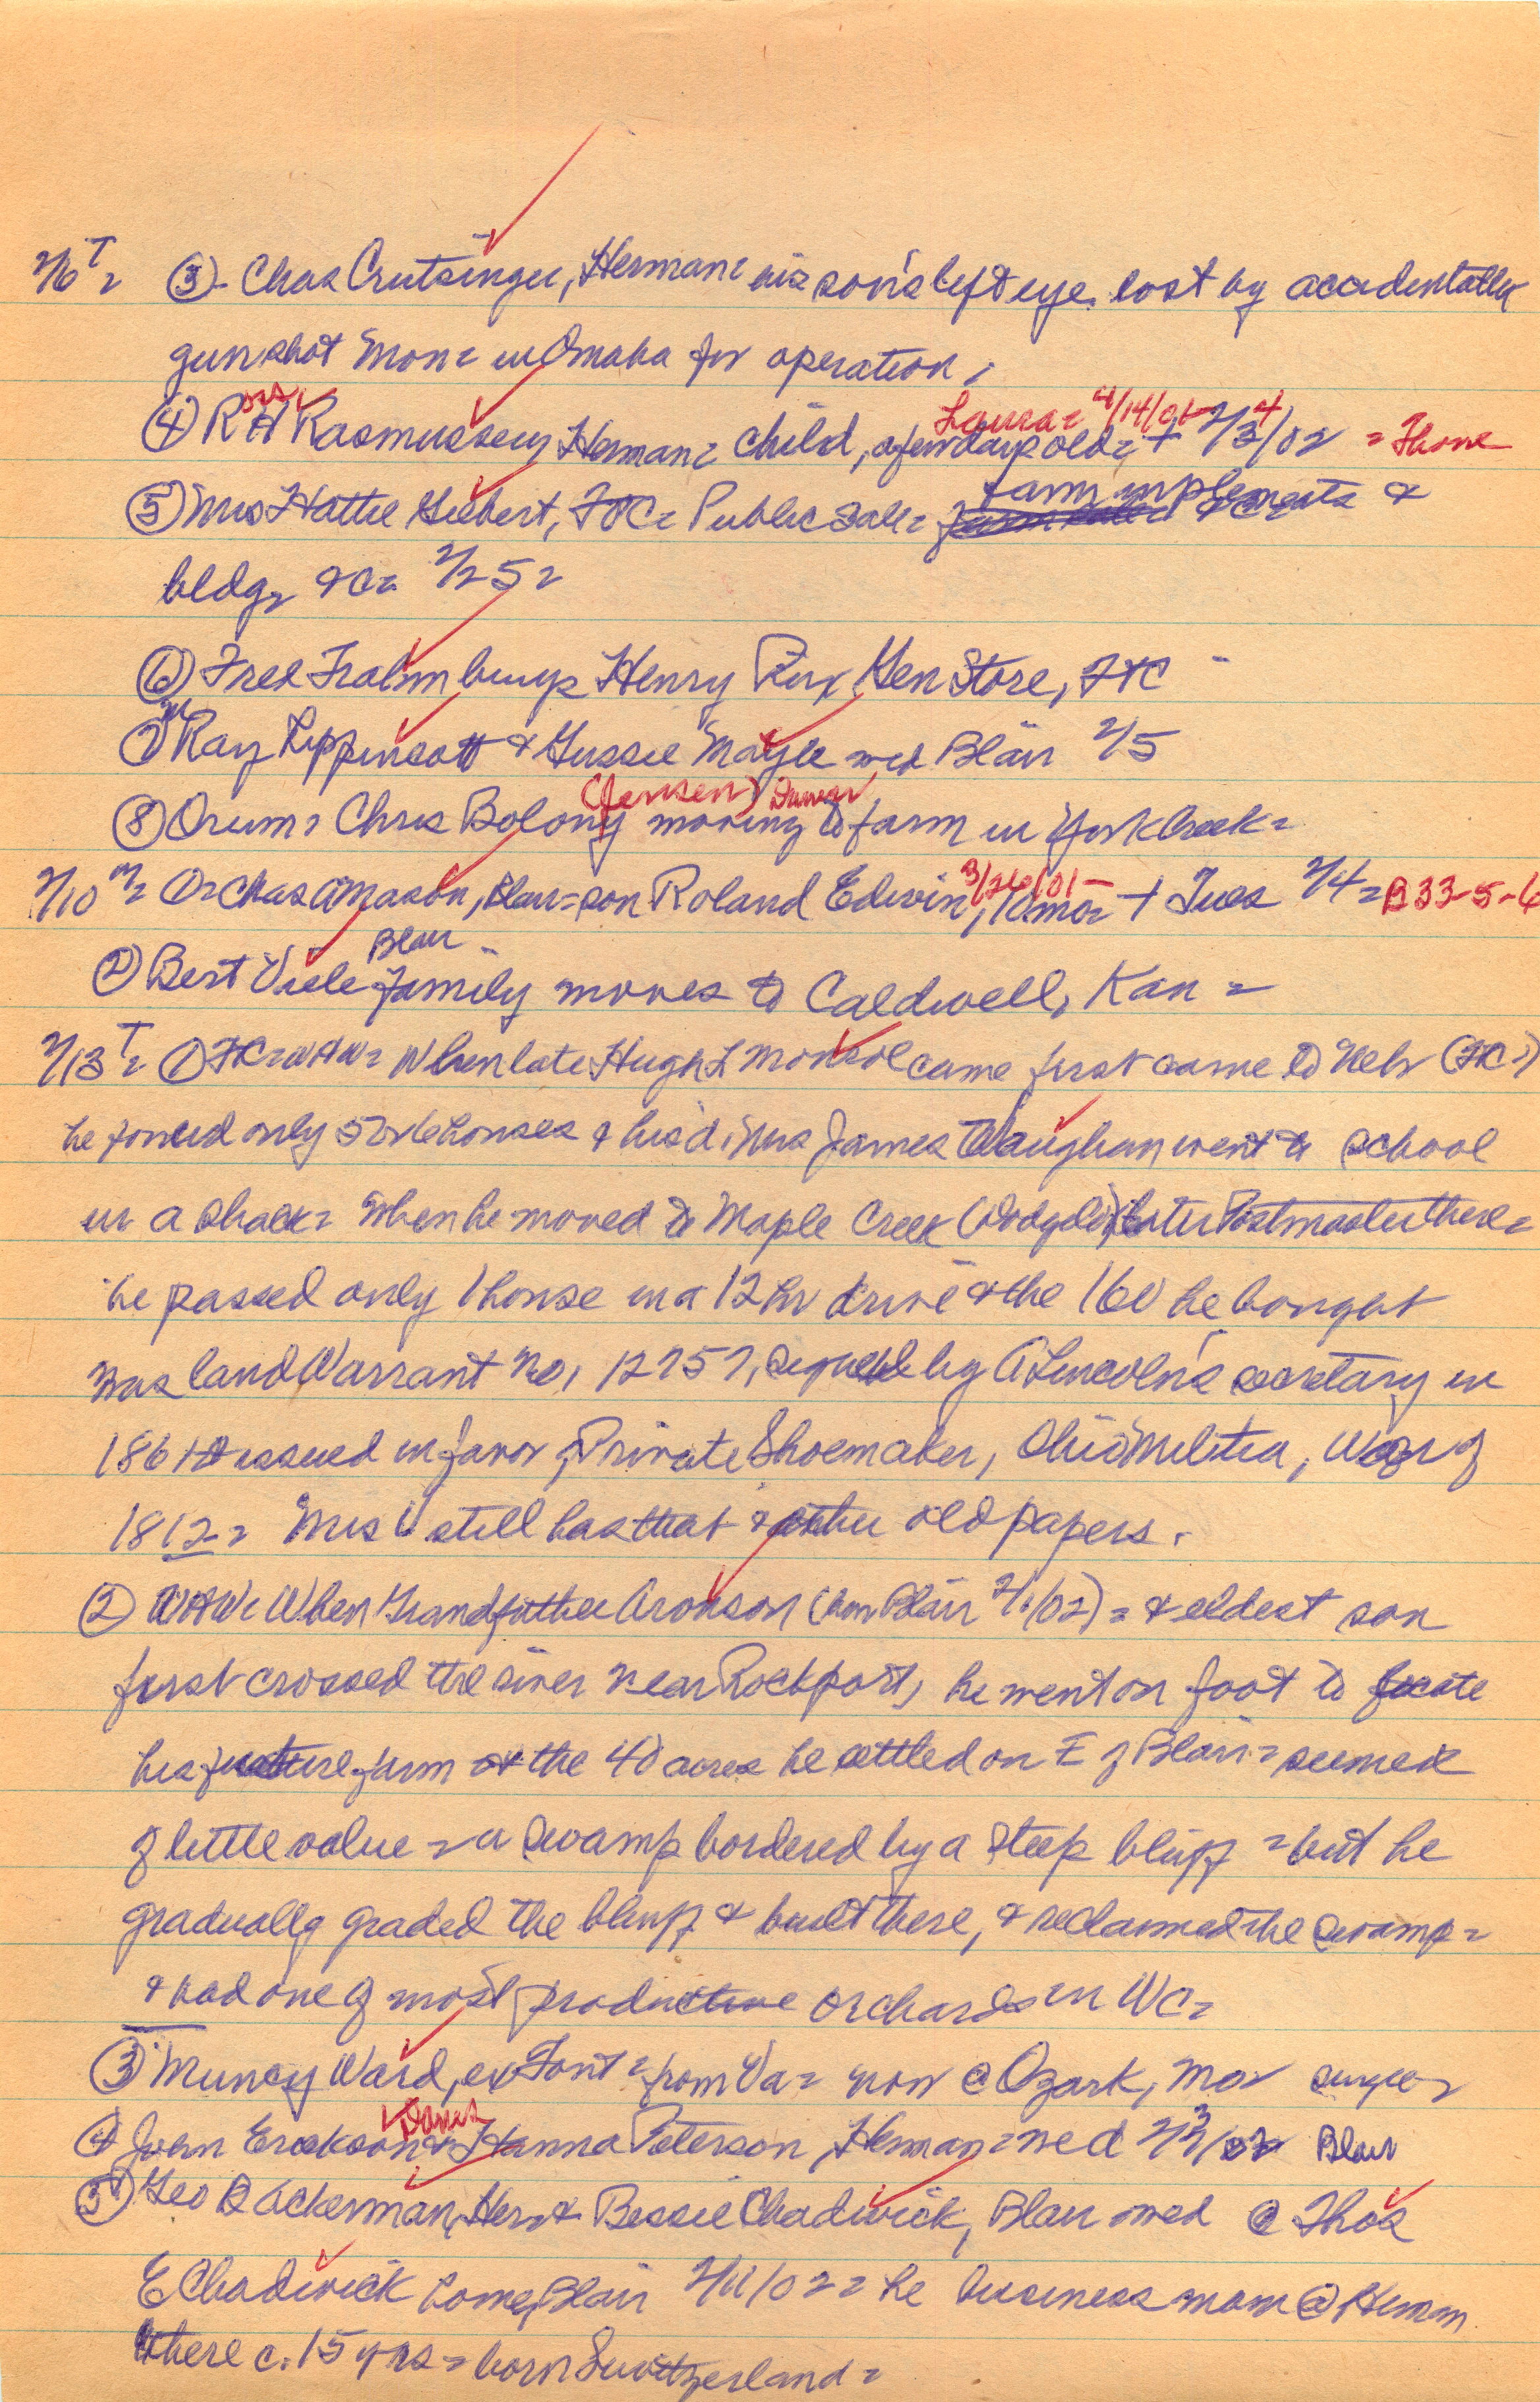 2/6 T = ③ - Chas Crutsinger, Herman = his son's left eye lost by accidentally
gunshot Mon = in Omaha for operation.
④ R H Rasmussen, Herman = child, a few days old = + 2/3/02 = Thone
Laura = 4/14/01 4
⑤ Mrs Hattie Giebert, FtC = Public Sale = farm implements &
bldgs &c = 2/25 =
⑥ Fred Frahm buys Henry Rix Gen Store, FtC
⑦ Ray Lippincott & Gussie Mayle wed Blair 2/5
(Jensen)
⑧ Orum = Chris Bolong moving to farm in York Creek =
2/10 m = Chas A Mason, Blair = son Roland Edwin, 10 mos + Tues 2/4 = B33-5-6
3/26/01 -
② Bert Viele Blair family moves to Caldwell, Kan =
2/13 T = ① FtC = WHW = When late Hugh L came first came to Neb (FtC =)
he found only 5 or 6 houses & his d, Mrs James Vaughan went to school
in a shack = When he moved to Maple Creek later Postmaster there =
he passed only 1 house in a 12 hr drive & the 160 he bought
was land Warrant No, 12757, signed by A Lincoln's secretary in
1861 issued in favor of Private Shoemaker, Ohio Militia, War of
1812 = Mrs V still has that & other old papers.
② WHW = When Grandfather Aronson (hon Blair 2/1/02) = & eldest son
first crossed the river near Rockport, he went on foot to locate
his future farm & the 40 acres he settled on E of Blair = seemed
of little value = a swamp bordered by a steep bluff = but he
gradually graded the bluff & built there, & reclaimed the swamp =
& had one of most productive orchards in WC =
③ Muncy Ward, ex Font = from Va = now @ Ozark, Mo =
④ John Erickson & Hanna Peterson, Herman = wed 2/3/02 Blair
⑤ Geo B Ackerman, Her = & Bessie Chadwick, Blair wed @ Thos
E Chadwick home, Blair 2/11/02 = he business man @ Herman
there c. 15 yrs = born Switzerland =